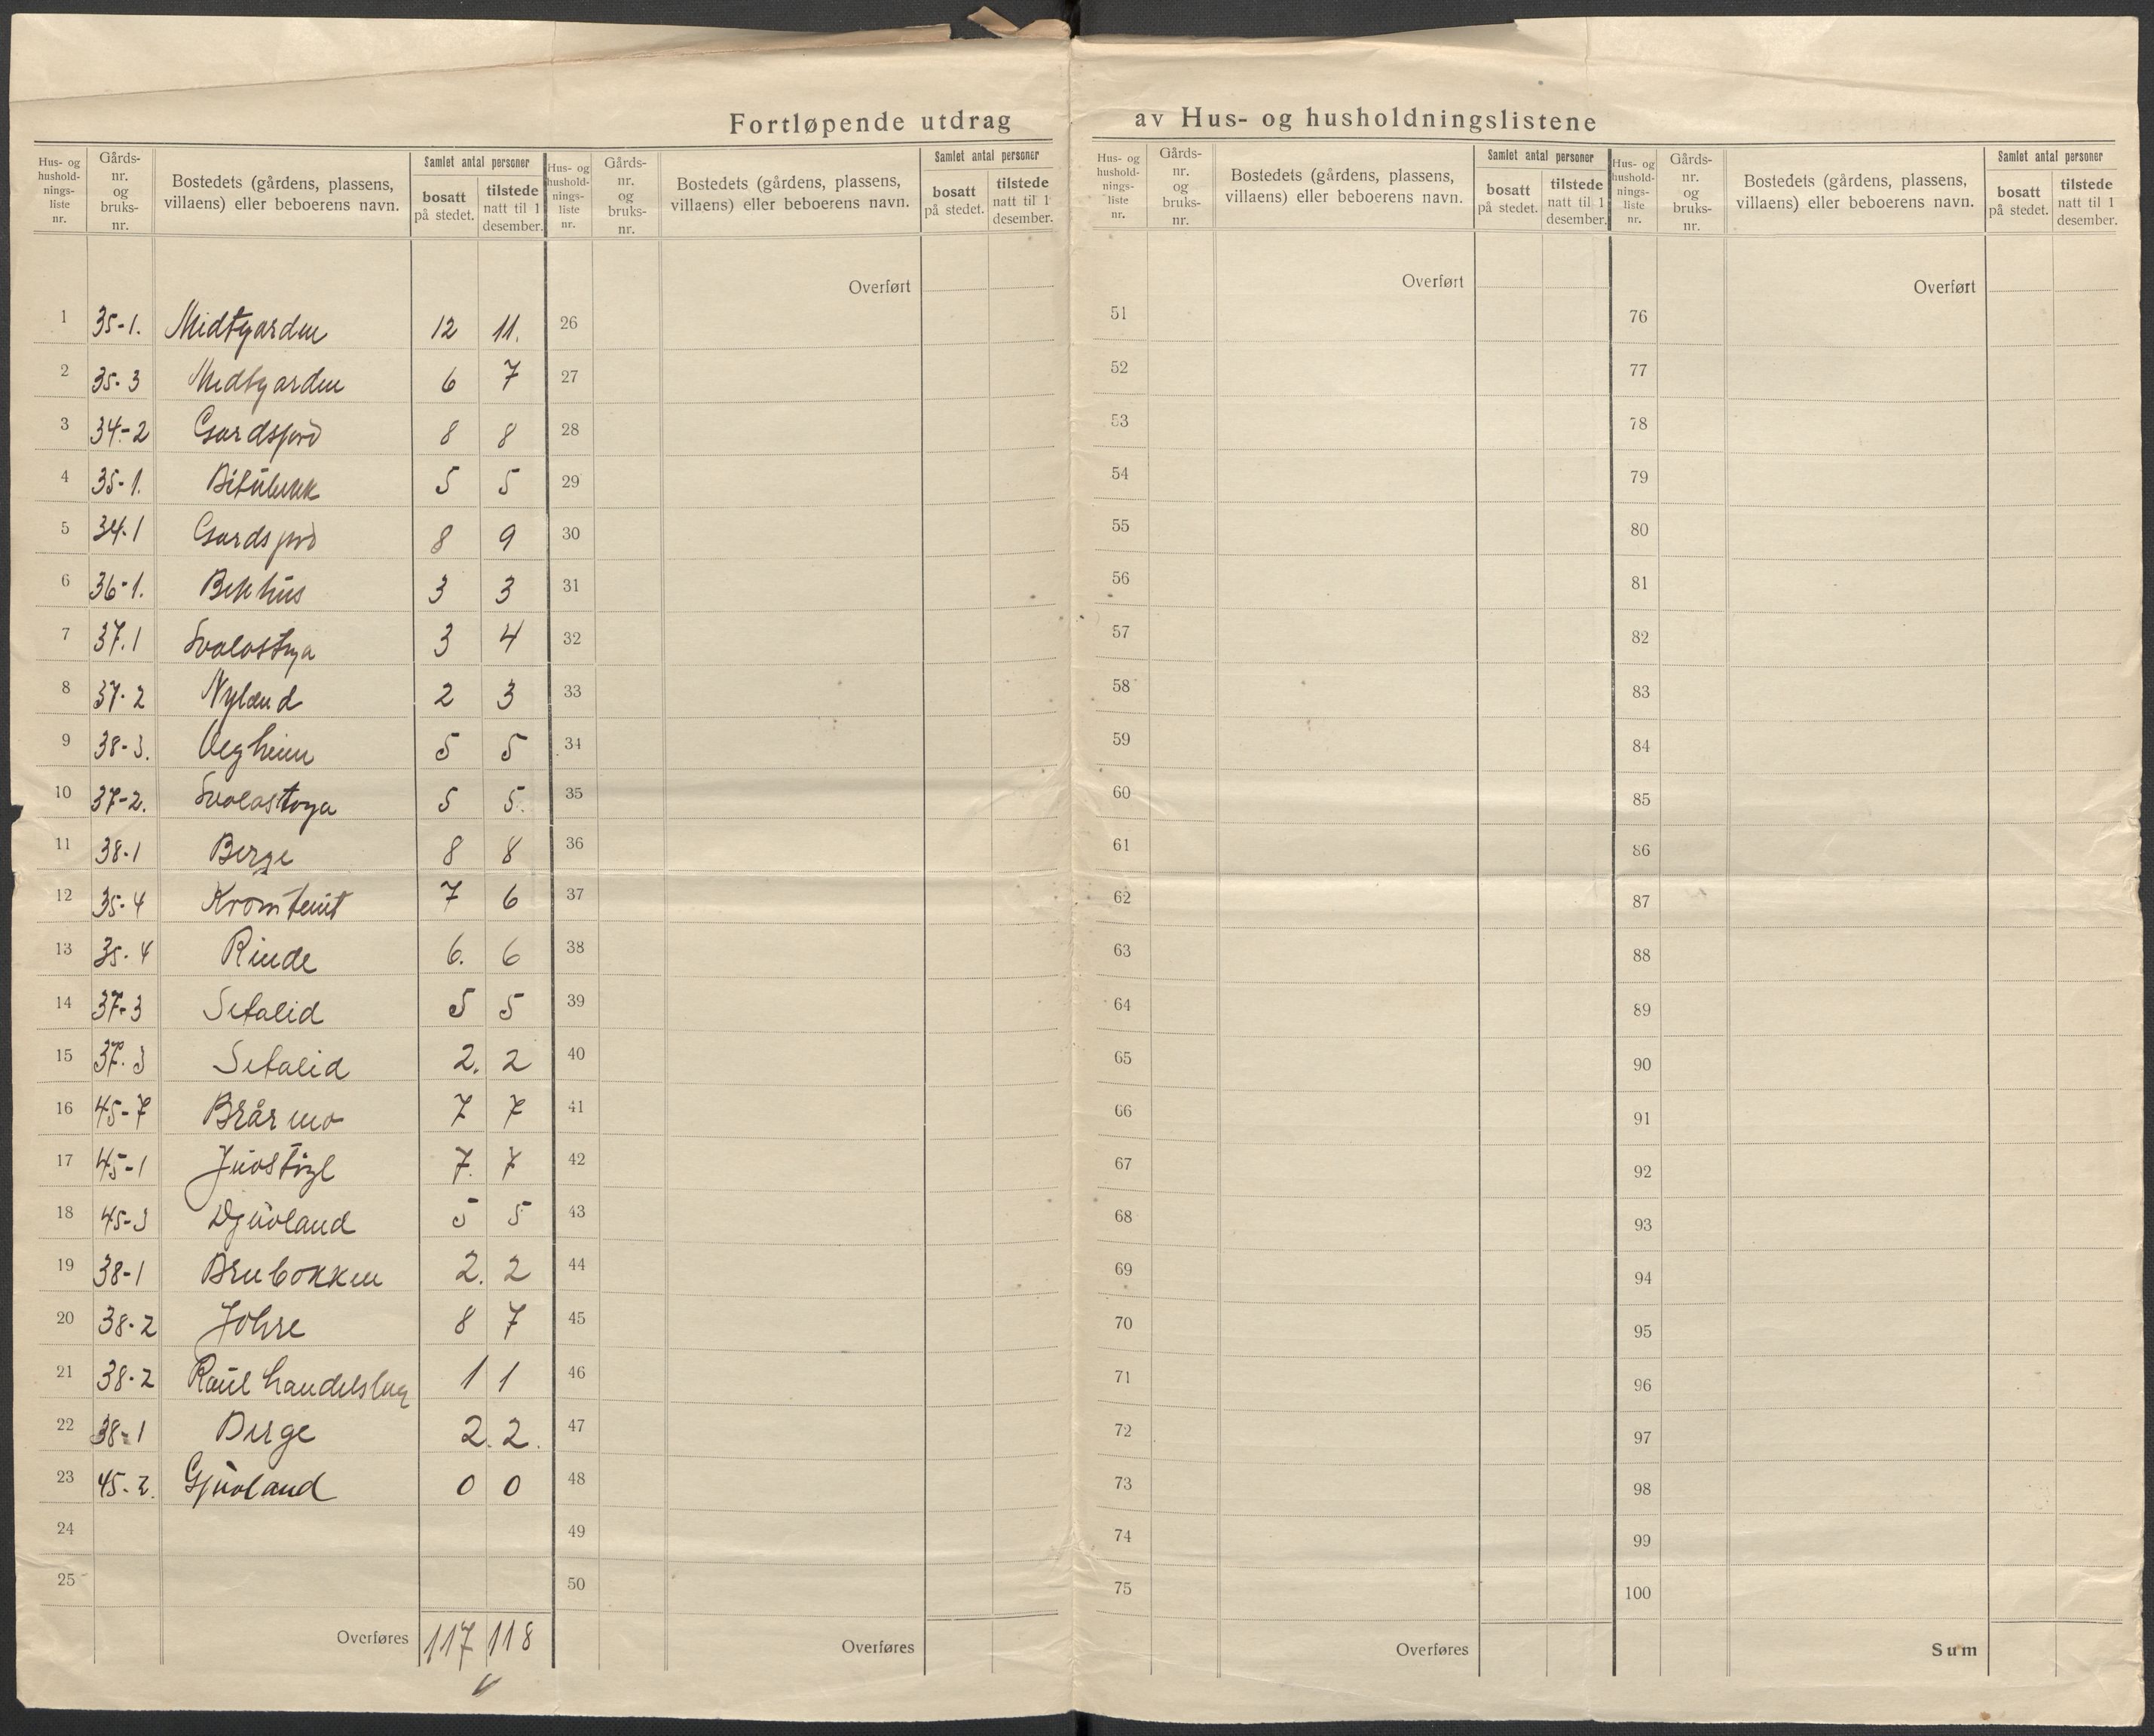 Fortløpende utdrag av Hus- og husholdningslistene
Hus- og hushold- nings- liste nr. Gårds- nr. og bruks- nr. Bostedets (gårdens, plassens, villaens) eller beboerens navn. Samlet antal personer bosatt på stedet. tilstede natt til 1 desember.
1 35-1. Midtgarden 12 11.
2 35-3 Midtgarden 6 7
3 34-2 Gardsjord 8 8
4 35-1. 5 5
5 34-1 Gardsjord 8 9
6 36-1. Bekhus 3 3
7 37.1 Svalastoga 3 4
8 37-2 Nyland 2 3
9 38-3. Vegheim 5 5
10 37-2. Svalastoga 5 5.
11 38-1 Berge 8 8
12 35-4 Kromtveit 7 6
13 35-4 Rinde 6. 6
14 37-3 Setalid 5 5
15 37-3 Setalid 2. 2
16 45-7 Brårmo 7 7
17 45-1 Juvstøyl 7. 7
18 45-3 Djuvland 5 5
19 38-1 Brubakken 2. 2
20 38-2 Johre 8 7
21 38-2 Rauland handelslag 1 1
22 38-1 Berge 2. 2.
23 45-2. Gjuvland 0 0
24
25
Overføres 117 118
Hus- og hushold- nings- liste nr. Gårds- nr. og bruks- nr. Bostedets (gårdens, plassens, villaens) eller beboerens navn. Samlet antal personer bosatt på stedet. tilstede natt til 1 desember.
Overført
26
27
28
29
30
31
32
33
34
35
36
37
38
39
40
41
42
43
44
45
46
47
48
49
50
Overføres
Hus- og hushold- nings- liste nr. Gårds- nr. og bruks- nr. Bostedets (gårdens, plassens, villaens) eller beboerens navn. Samlet antal personer bosatt på stedet. tilstede natt til 1 desember.
Overført
51
52
53
54
55
56
57
58
59
60
61
62
63
64
65
66
67
68
69
70
71
72
73
74
75
Overføres
Hus- og hushold- nings- liste nr. Gårds- nr. og bruks- nr. Bostedets (gårdens, plassens, villaens) eller beboerens navn. Samlet antal personer bosatt på stedet. tilstede natt til 1 desember.
Overført
76
77
78
79
80
81
82
83
84
85
86
87
88
89
90
91
92
93
94
95
96
97
98
99
100
Sum